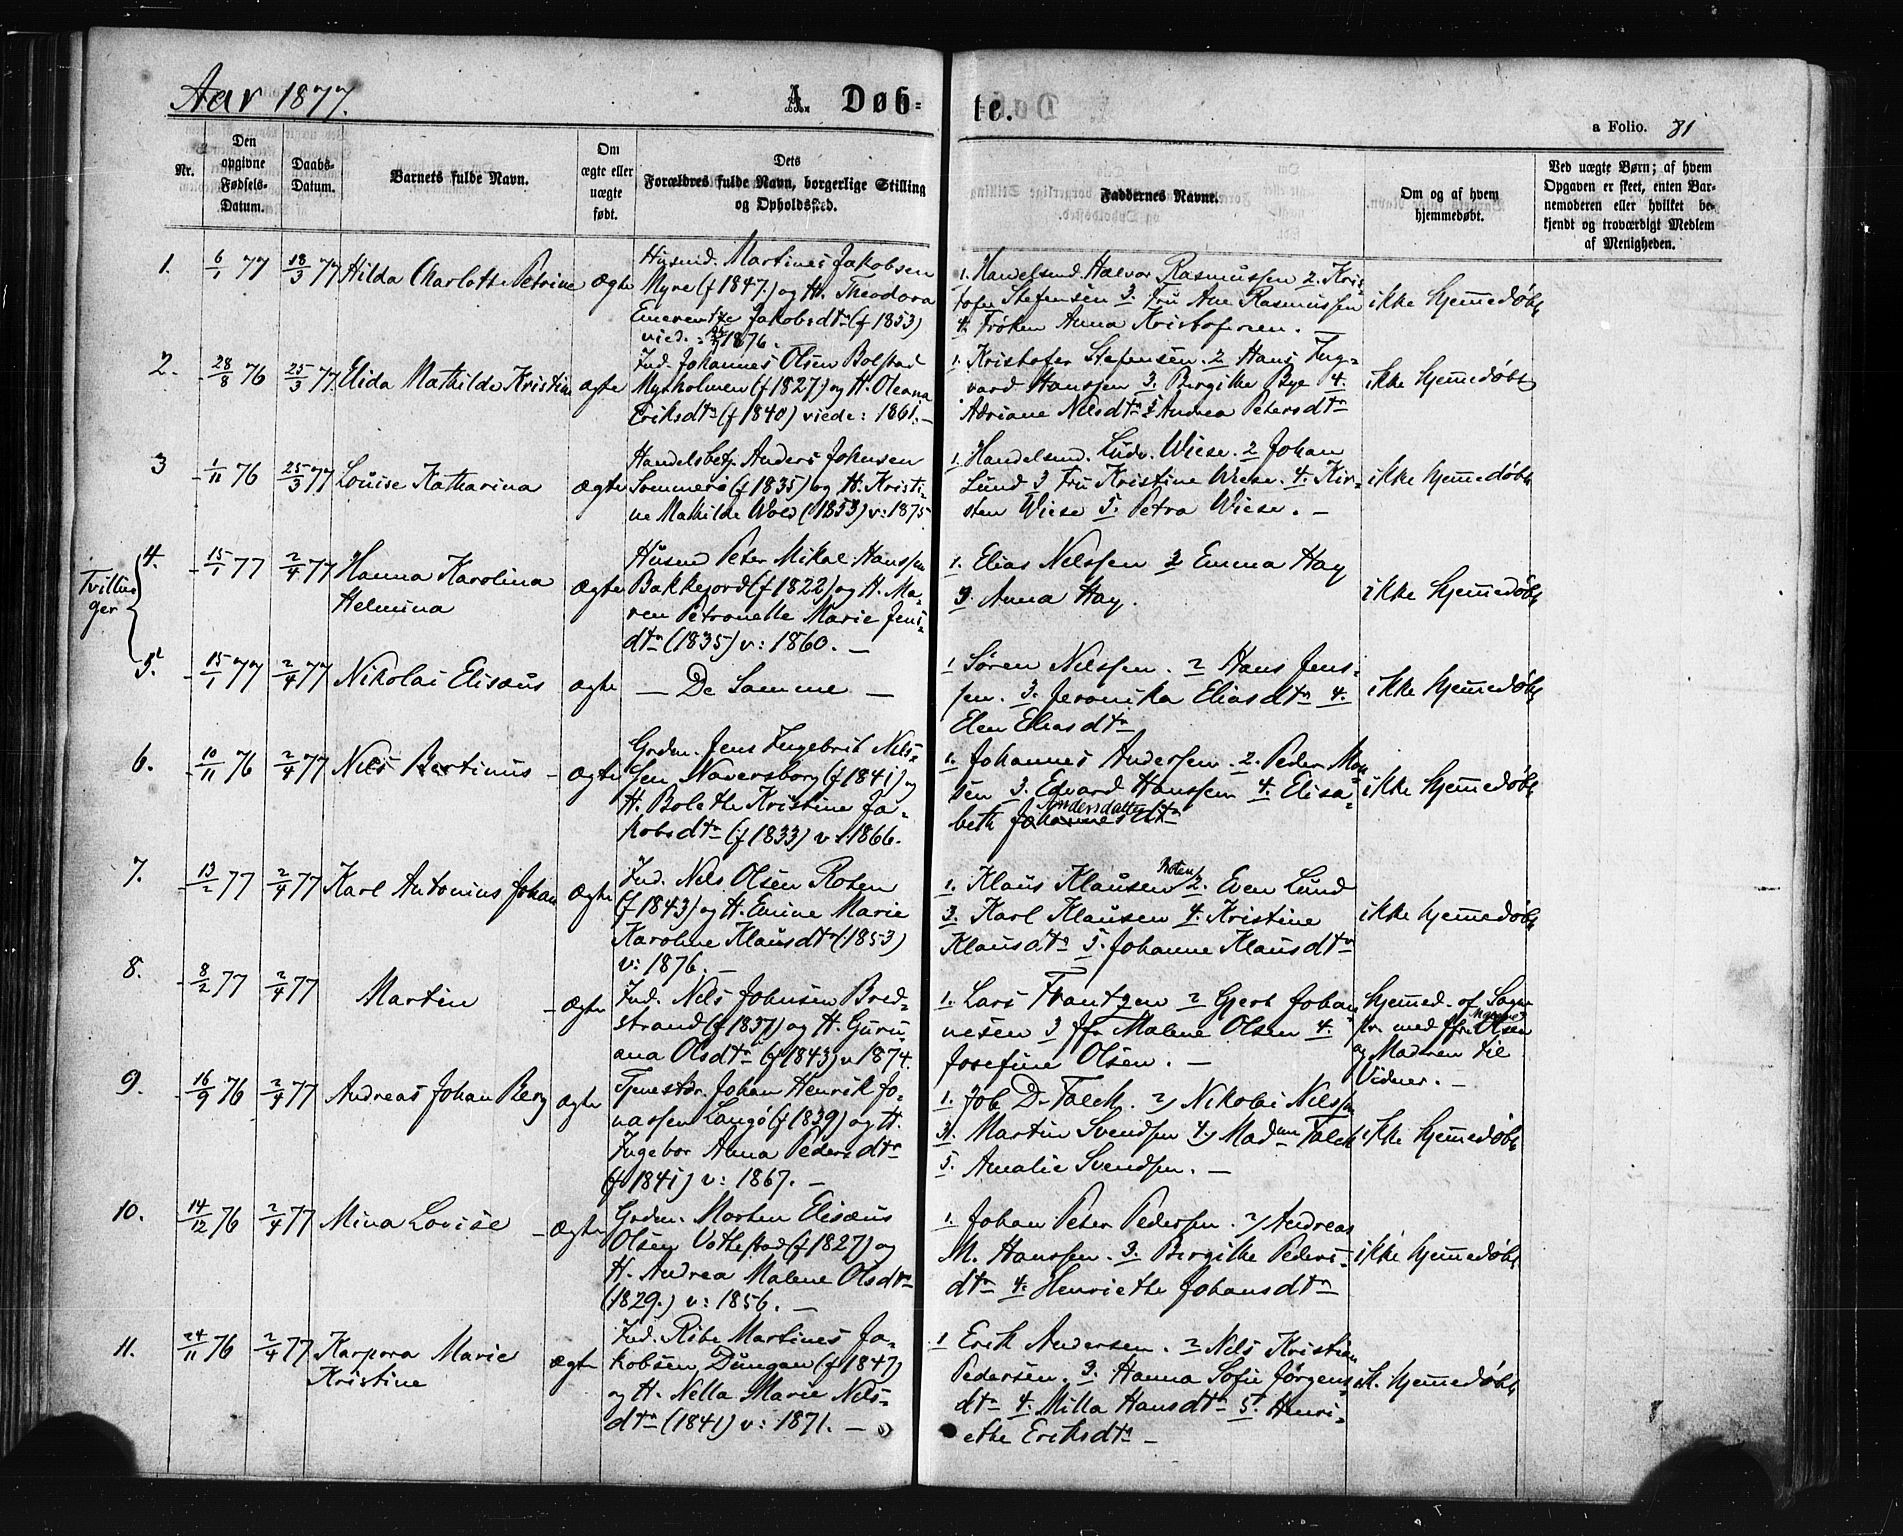 Aar 1877.
A. Døb-
te.
a Folio. 81
Nr.
Den
opgivne
Fødsels-
Datum.
Daabs-
Datum.
Barnets fulde Navn.
Om
ægte eller
uægte
født.
Dets
Forældres fulde Navn, borgerlige Stilling
og Opholdssted.
Faddernes Navne.
Om og af hvem
hjemmedøbt.
Ved uægte Børn; af hvem
Opgaven er skeet, enten Bar-
nemoderen eller hvilket be-
kjendt og troværdigt Medlem
af Menigheden.
1. 6/1 77 18/3 77 Hilda Charlotte Petrine ægte
Husmd. Martines Jakobsen
Myre (f 1847.) og H. Theodora
Emerentze Jakobsdtr (f 1853)
vied. 1876.
1. Handelsmd. Halvor Rasmussen 2. Kris-
tofer Stefensen 3. Fru Ane Rasmussen
4. Frøken Anna Kristofersen. —
ikke hjemmedøbt
2. 28/8 76 25/3 77. Elida Mathilde Kristine ægte
Ind. Johannes Olsen Bolstad
Myrholmen (f 1827) og H. Oleana
Eriksdtr (f 1840) viede: 1861. —
1. Kristofer Stefensen. 2 Hans Ing-
vard Hanssen 3. Bergithe Bye 4.
Adriane Nilsdtr 5 Andrea Petersdtr
ikke hjemmedøbt
3 1/11 76 25/3 77 Louise Katharina ægte
Handelsbetj. Anders Johnsen
Sommerø (f 1835) og H. Kristi-
ne Mathilde Wold (1853) v: 1875
1. Handelsmd. Ludv. Wiese. 2 Johan
Lund 3 Fru Kristine Wiese. 4. Kir-
sten Wiese 5. Petra Wiese. —
ikke hjemmedøbt
Tvillin-
ger
4. 15/1 77 2/4 77 Hanna Karolina
Helmina
ægte
Husmd Peter Mikal Hanssen
Bakkejord (f 1822) og H. Ma-
ren Petronelle Marie Jens-
dtr (1835) v: 1860. —
1. Elias Nilssen 2 Emma Hay
3 Anna Hay.
ikke hjemmedøbt
5. 15/1 77 2/4 77 Nikolai Elisæus ægte — De Samme —
1 Søren Nilssen. 2 Hans Jens-
sen. 3. Jeronika Eliasdtr 4.
Elen Eliasdtr
ikke hjemmedøbt
6. 10/11 76 2/4 77 Nils Bertinus - ægte
Grdm. Jens Ingebrit Nils-
sen Naversborg (f 1841) og
H. Bolethe Kristine Ja-
kobsdtr (f 1833) v: 1866.
1. Johannes Anderssen. 2. Peder Mon-
sen 3. Edvard Hanssen 4. Elisa-
beth Johannesdtr Andersdatter
ikke hjemmedøbt
7. 13/2 77 2/4 77 Karl Antonius Johan ægte
Ind. Nils Olsen Roten
(f 1843) og H. Emine Marie
Karoline Klausdtr (1853)
v: 1876. —
1. Klaus Klausen Roten 2. Even Lund
3. Karl Klausen 4. Kristine
Klausdtr 5. Johanne Klausdtr
ikke hjemmedøbt
8. 8/2 77 2/4 77 Martin - ægte
Ind. Nils Johnsen Bred-
strand (f 1837) og H. Guru-
ana Olsdtr (f 1843) v 1874.
1. Lars Frantzen 2 Gjert Johan-
nesen 3 Malene Olsen 4.
Josefine Olsen. —
hjemmed. af
med Olsen
og Moderen til
Vidner. —
9. 16/9 76 2/4 77 Andreas Johan Berg ægte
Tjenestdr. Johan Henrik Jo-
nassen Langø (f 1839) og H.
Ingebor Anna Pedersdtr
(f 1841) v: 1867. —
1. Job D. Falch. 2) Nikolai Nilssen
3. Martin Svendsen 4) Madme Falch
5. Amalie Svendsen. —
ikke hjemmedøbt
10. 14/12 76 2/4 77 Mina Lovise - ægte
Grdm. Morten Elisæus
Olsen Vothestad (f 1827) og
H. Andrea Malene Olsdtr
(1829.) v: 1856. —
1. Johan Peter Pedersen. 2) Andreas
M. Hanssen. 3. Bergithe Peders-
dtr 4. Henriethe Johansdtr
ikke hjemmedøbt
11. 24/11 76 2/4 77 Karpora Marie
Kristine
ægte
Ind. Ribe Martines Ja-
kobsen Dungan (f 1847)
og H. Nella Marie Nils-
dtr (1841) v: 1871. —
1 Erik Andersen. 2 Nils Kristian
Pedersen. 3. Hanna Sofie Jørgens-
dtr 4. Milla Hansdtr 5. Henri-
ethe Eriksdtr —
ik. hjemmedøbt